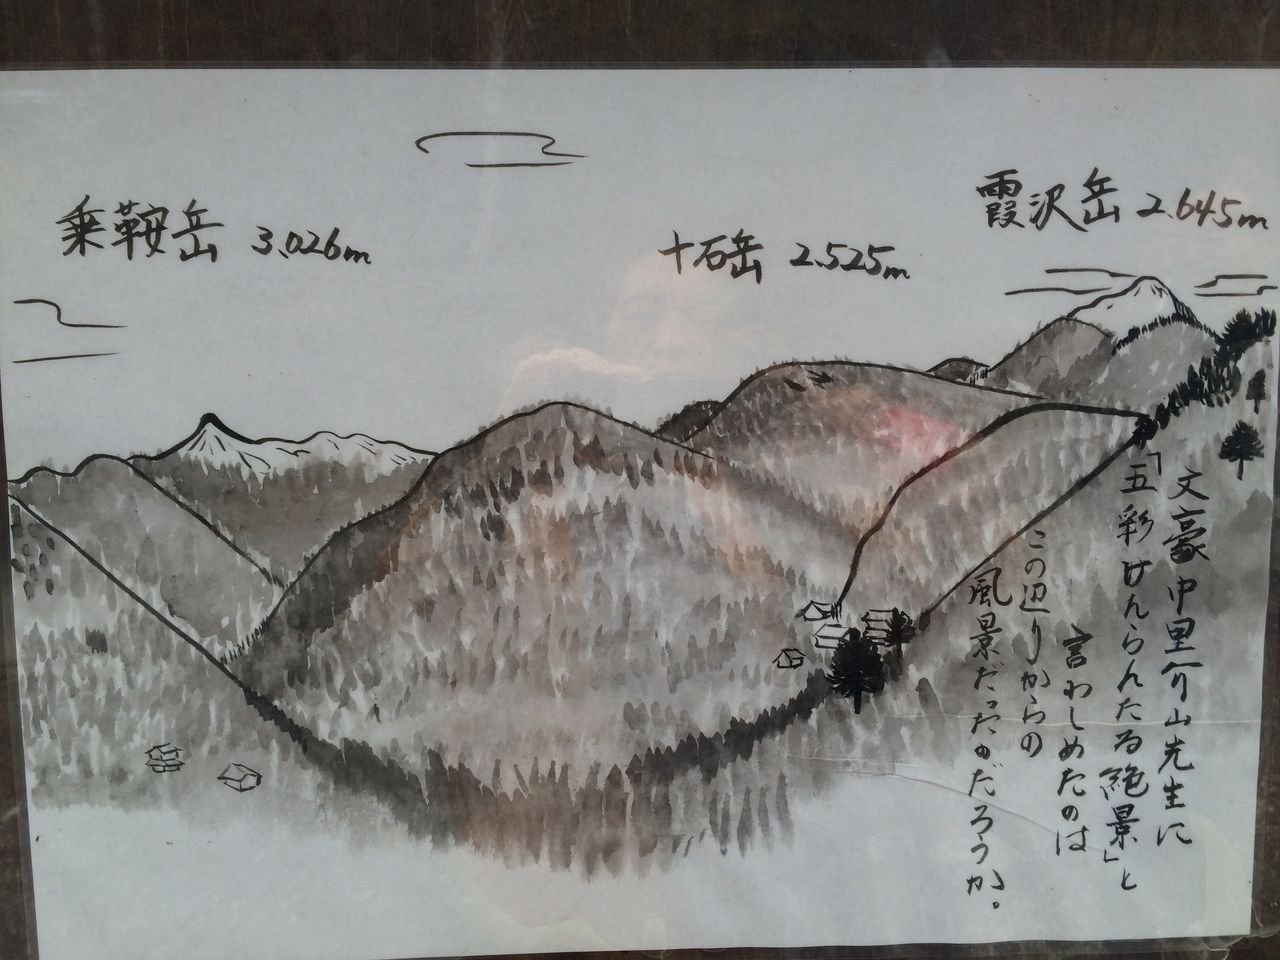 乗鞍岳 3.026m
十石岳 2.525m
霞沢岳 2.645m
文豪中里介山先生に
「五彩けんらんたる絶景」と
言わしめたのは
この辺りからの
風景だったのだろうか。